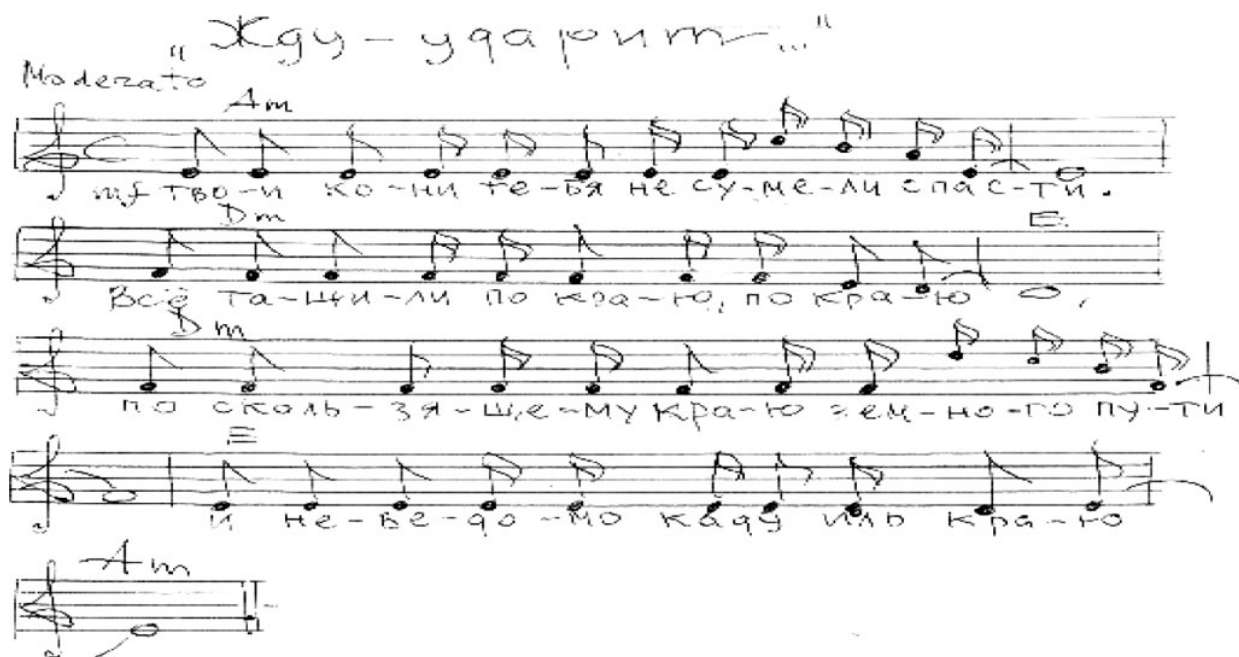 „Жду-ударит..."
Moderato
Am
mf Тво-и ко-ни те-бя не су-ме-ли спас-ти.
Dm E
Всё та-щи-ли по кра-ю, по кра-ю,
Dm
по сколь-зя-ще-му кра-ю зем-но-го пу-ти
E
и не-ве-до-мо каду иль кра-ю
Am